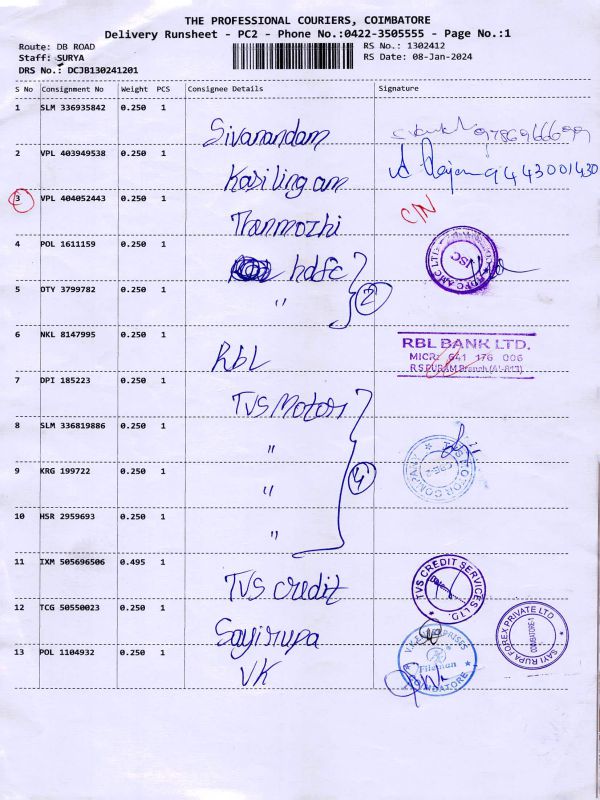 THE PROFESSIONAL COURIERS, COIMBATORE
Delivery Runsheet - PC2 - Phone No.:0422-3505555 - Page No.:1
Route: DB ROAD RS No.: 1302412
Staff: SURYA RS Date: 08-Jan-2024
DRS No.: DCJB130241201
S No Consignment No Weight PCS Consignee Details Signature
1 SLM 336935842 0.250 1
Sivanandam 9786966699
2 VPL 403949538 0.250 1
Kasilingam 9443001430
3 VPL 404052443 0.250 1
Thenmozhi C/N
4 POL 1611159 0.250 1
hdfc HDFC AMC LTD
ISC
5 DTY 3799782 0.250 1
" 2
6 NKL 8147995 0.250 1
Rbl RBL BANK LTD.
MICR: 641 176 006
R.S PURAM Branch
7 DPI 185223 0.250 1
TVS Motors
8 SLM 336819886 0.250 1
" TVS MOTOR COMPANY
9 KRG 199722 0.250 1
" 4
10 HSR 2959693 0.250 1
"
11 IXM 505696506 0.495 1
TVS credit TVS CREDIT SERVICES LTD.
12 TCG 50550023 0.250 1
Sayirupa SAYI RUPA FOREX PRIVATE LTD
COIMBATORE-1
13 POL 1104932 0.250 1
VK V.K. ENTERPRISES
Fileman
COIMBATORE